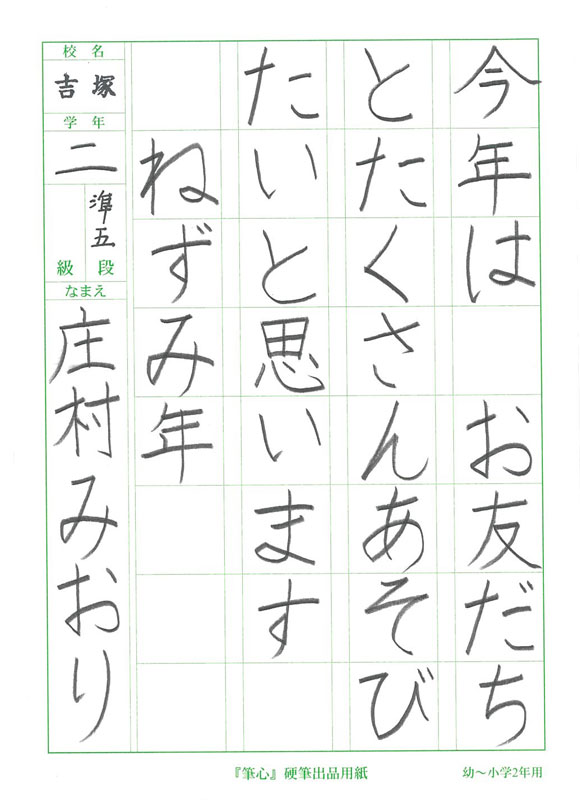 今年は　お友だち
とたくさんあそび
たいと思います
ねずみ年
校名
吉塚
学年
二
準五
級段
なまえ
庄村みおり
『筆心』硬筆出品用紙
幼～小学2年用